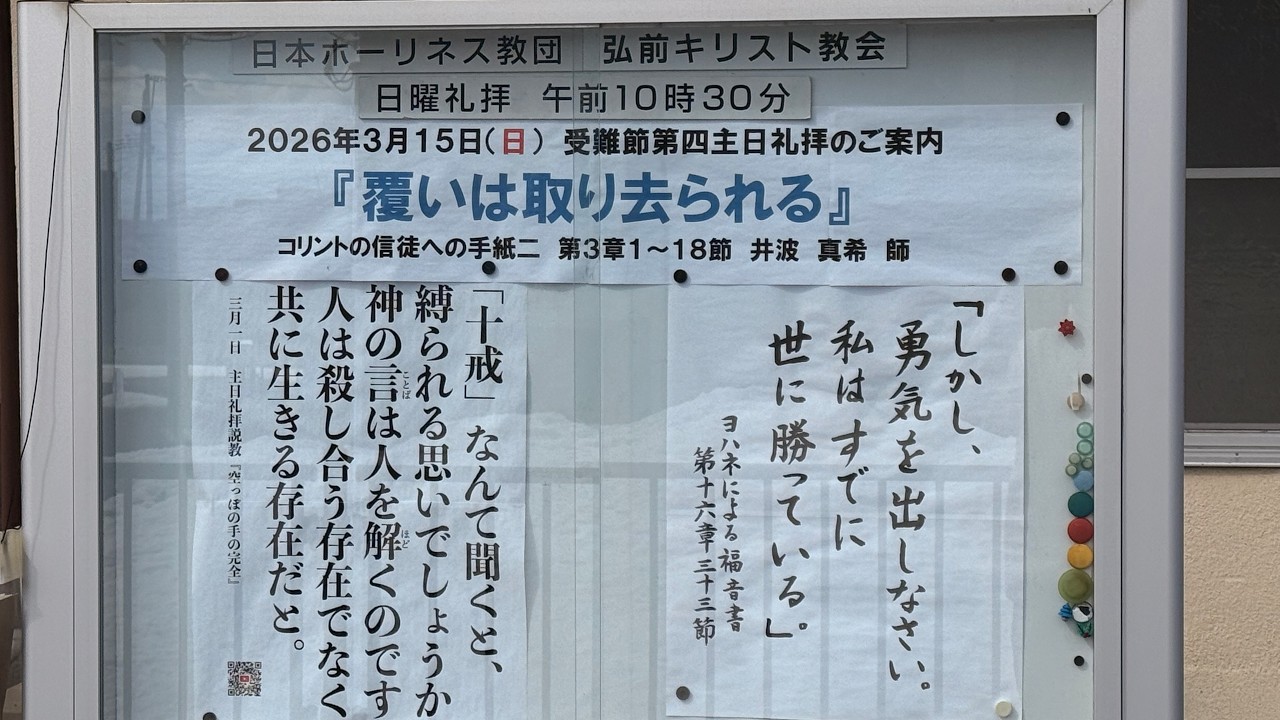 日本ホーリネス教団 弘前キリスト教会
日曜礼拝 午前10時30分
2026年3月15日(日) 受難節第四主日礼拝のご案内
『覆いは取り去られる』
コリントの信徒への手紙二 第3章1～18節 井波 真希 師
「しかし、
勇気を出しなさい。
私はすでに
世に勝っている。」
ヨハネによる福音書
第十六章 三十三節
「十戒」なんて聞くと、
縛られる思いでしょうか
神の言は人を解くのです
ことば
ほど
人は殺し合う存在でなく
共に生きる存在だと。
三月一日 主日礼拝説教『空っぽの手の完全』